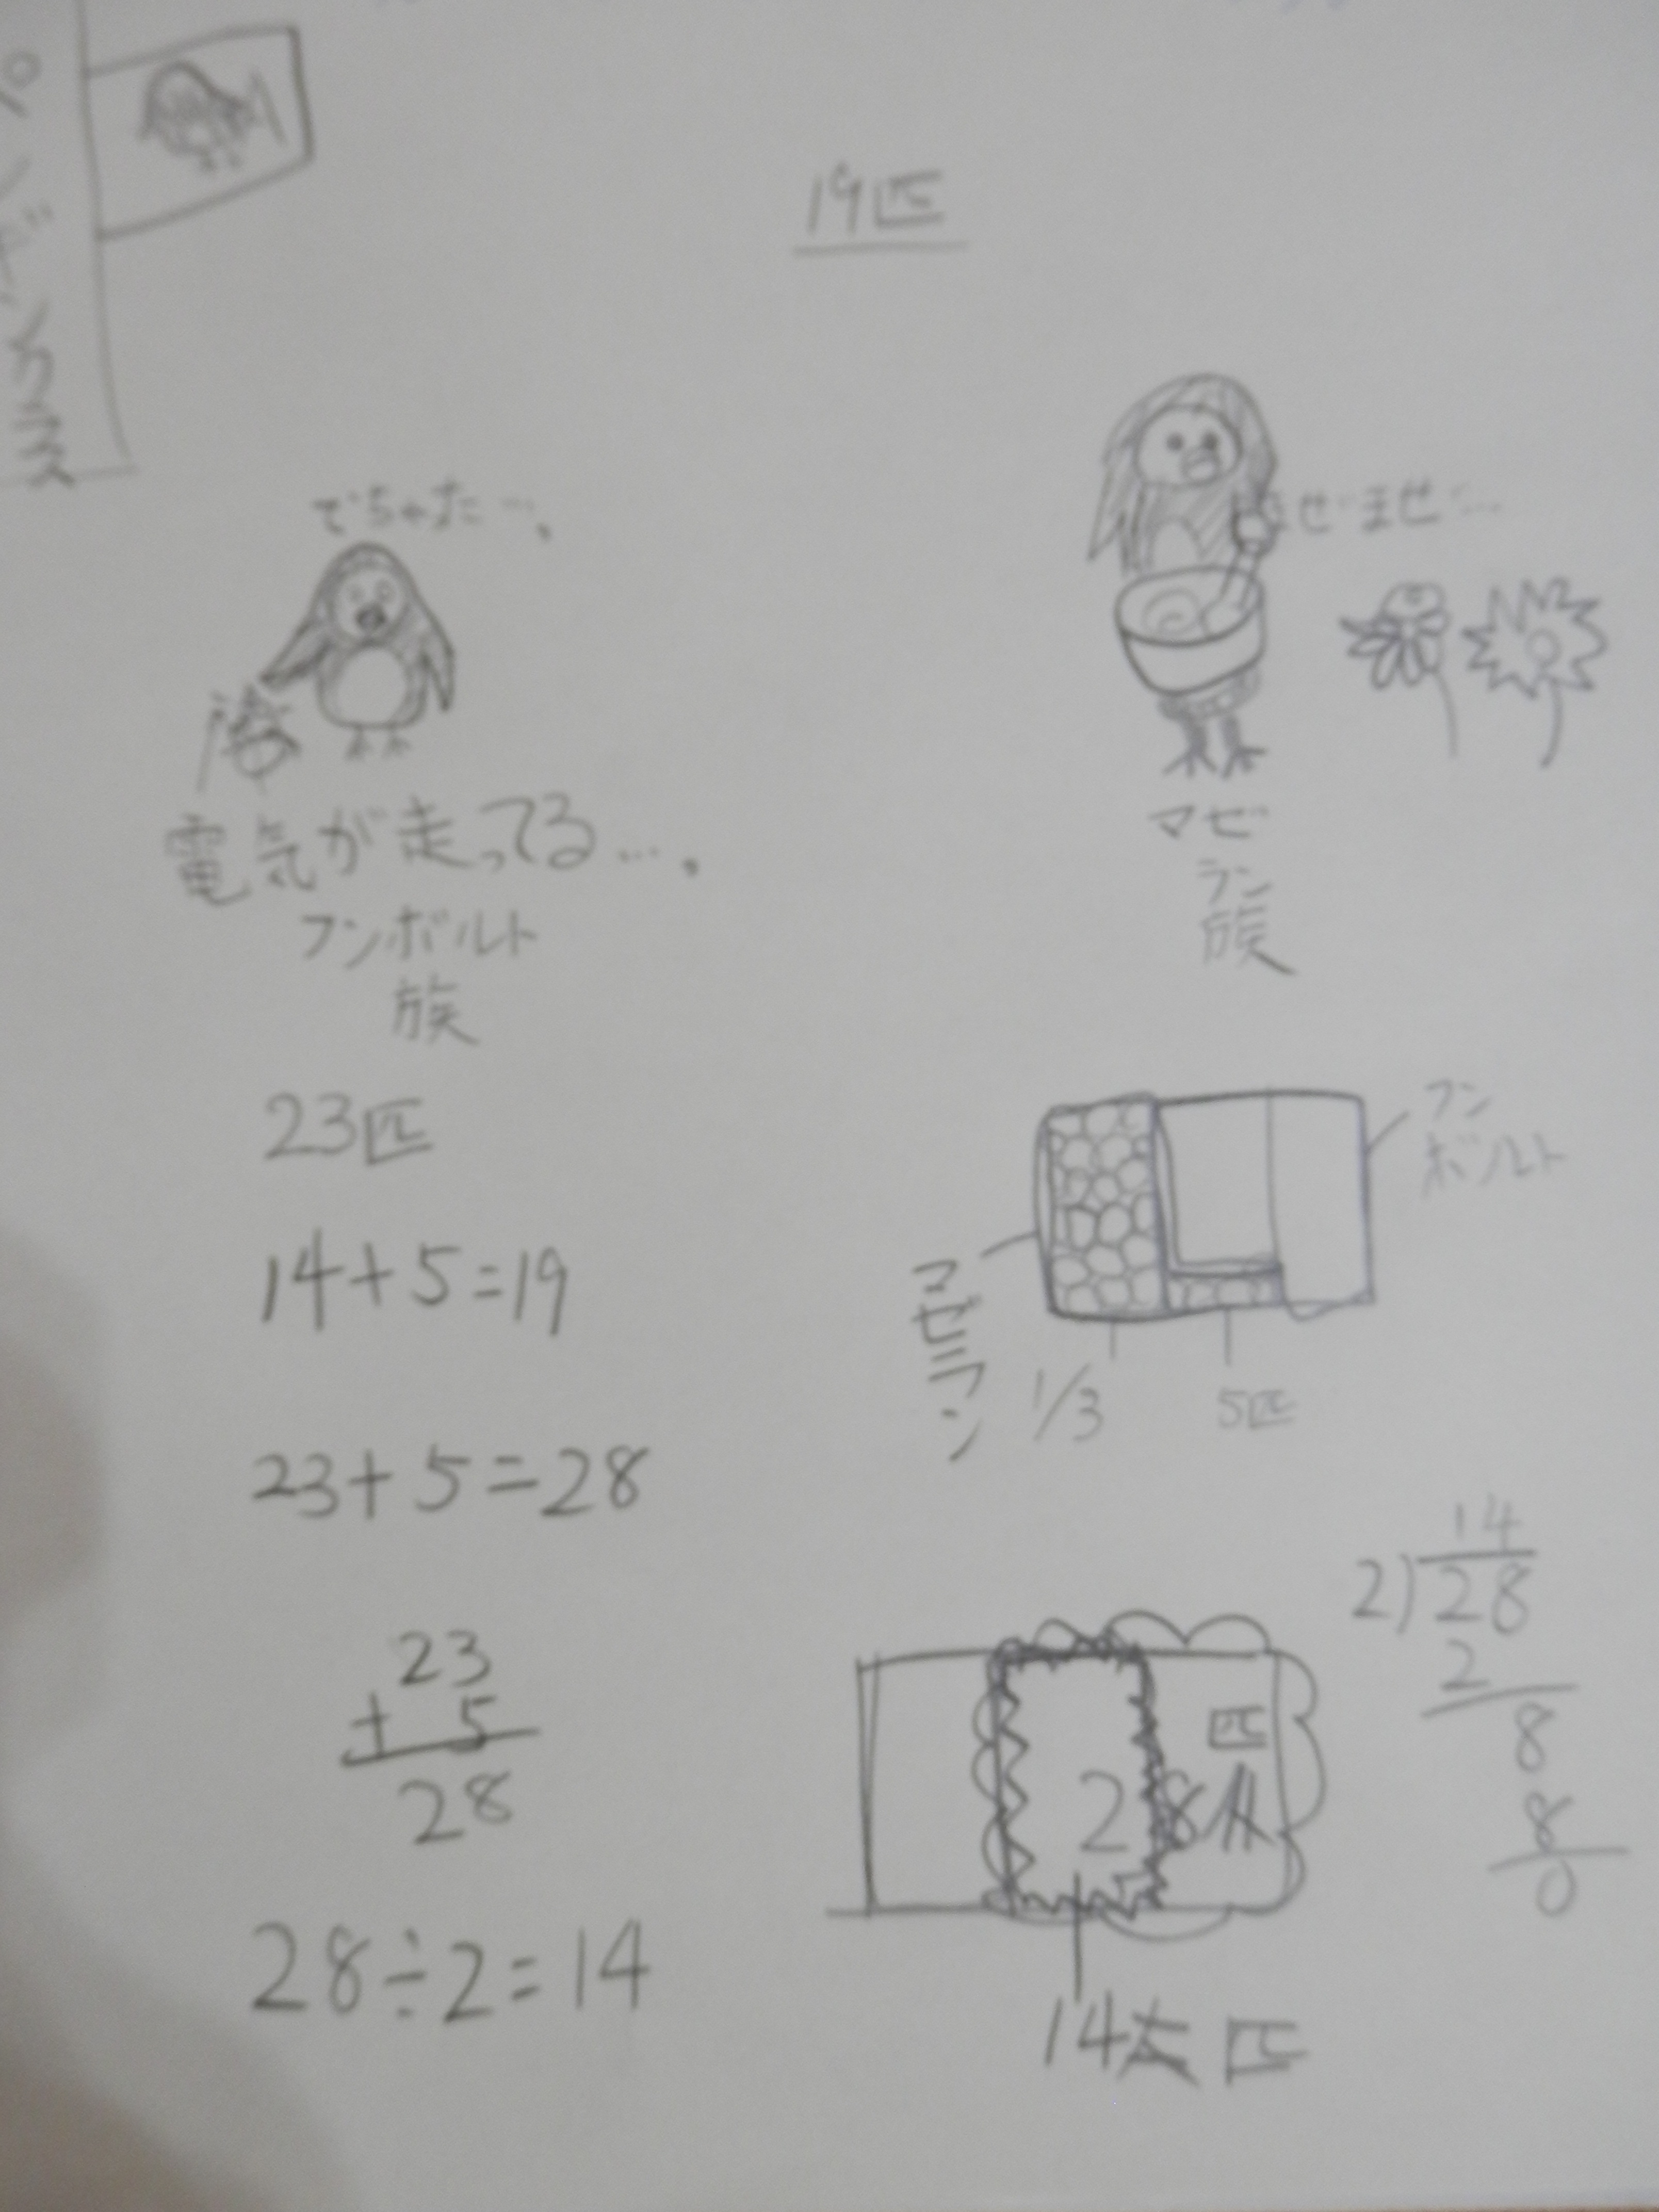 ペンギンクラス
19匹
でちゃた…。
まぜまぜ…
電気が走ってる…。
フンボルト
族
マゼ
ラン
族
23匹
14+5=19
23+5=28
23
+ 5
28
28÷2=14
フン
ボルト
マゼラン
1/3
5匹
14
2)28
2
8
8
0
匹
28
14匹